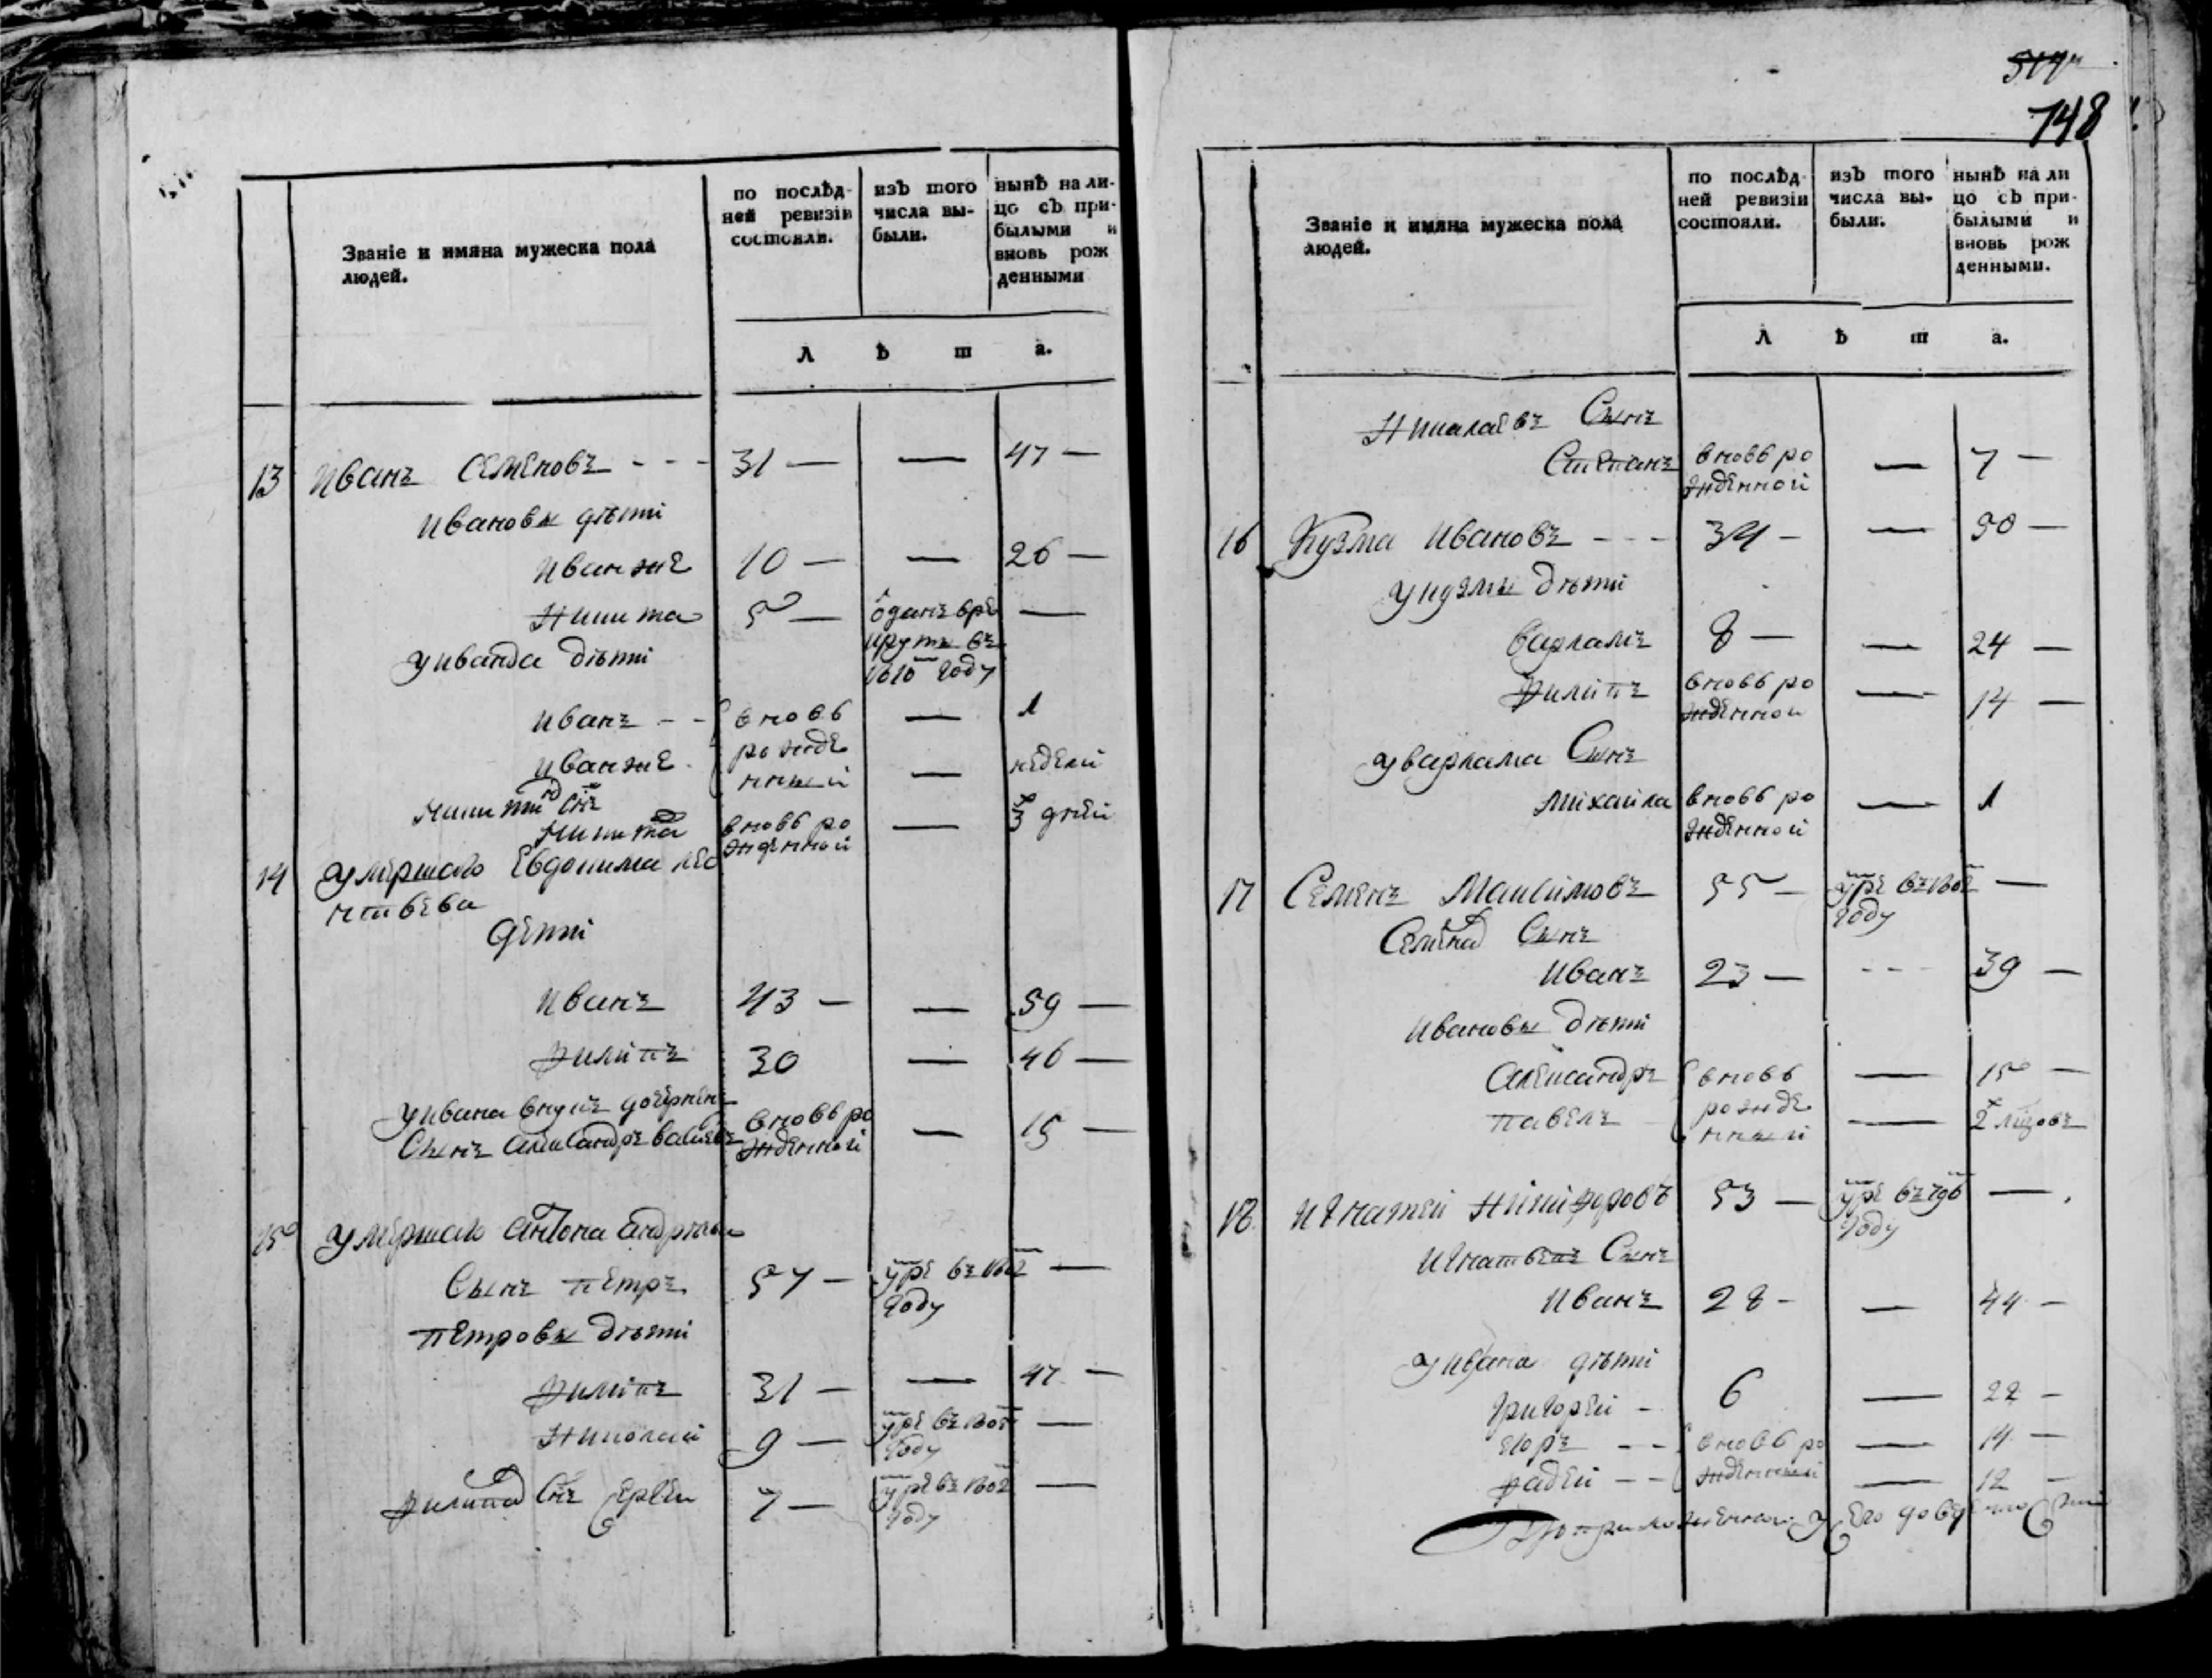 Званіе и имяна мужеска пола
людей.
по послѣд-
ней ревизіи
состояли.
изЪ того
числа вы-
были.
нынѣ на ли-
цо сЪ при-
былыми и
вновь рож
денными
л ѣ т а.
13 Иванъ Семеновъ - - - 31 — — 47 —
Ивановы дѣти
Иванже 10 — — 26 —
Никита 5 — отданъ вре —
круты въ
году
уивана дѣти
Иванъ - - вновь — 1
Иванже рожде — недели
нныи
Никиты Снъ
Никита вновь ро — 3 дней
жденной
14 умершаго Евдокима
дети
Иванъ 43 — — 59 —
Филипъ 30 — 46 —
уивана внукъ
Сынъ Александръ вновь ро — 15 —
жденной
15 умершаго Антона
Сынъ петръ 57 — умре въ —
году
петровы дѣти
Филипъ 31 — — 47 —
Николай 9 — умре въ —
году
Филипа Снъ Сергеи 7 — умре въ —
году
517
148
Званіе и имяна мужеска пола
людей.
по послѣд-
ней ревизіи
состояли.
изЪ того
числа вы-
были.
нынѣ на ли
цо сЪ при-
былыми и
вновь рож
денными.
л ѣ т а.
Николаевъ Сынъ
Степанъ вновь ро — 7 —
жденной
16 Кузма Ивановъ - - - 34 - — 50 —
укузмы дѣти
Варламъ 8 — — 24 —
Филипъ вновь ро — 14 —
жденной
уварлама Сынъ
Михайла вновь ро — 1
жденной
17 Семенъ Максимовъ 55 — умре въ —
году
Семена Сынъ
Иванъ 23 — - - - 39 —
Ивановы дѣти
Александръ вновь — 15 —
павелъ рожде —
нныи
18 Игнатей Никифоровъ 53 — умре въ —
году
Игнатьевъ Сынъ
Иванъ 28 - — 44 —
уивана дѣти
Григорей - 6 — 22 —
Егоръ - - вновь ро — 14 —
фадеи - - жденныи — 12 —